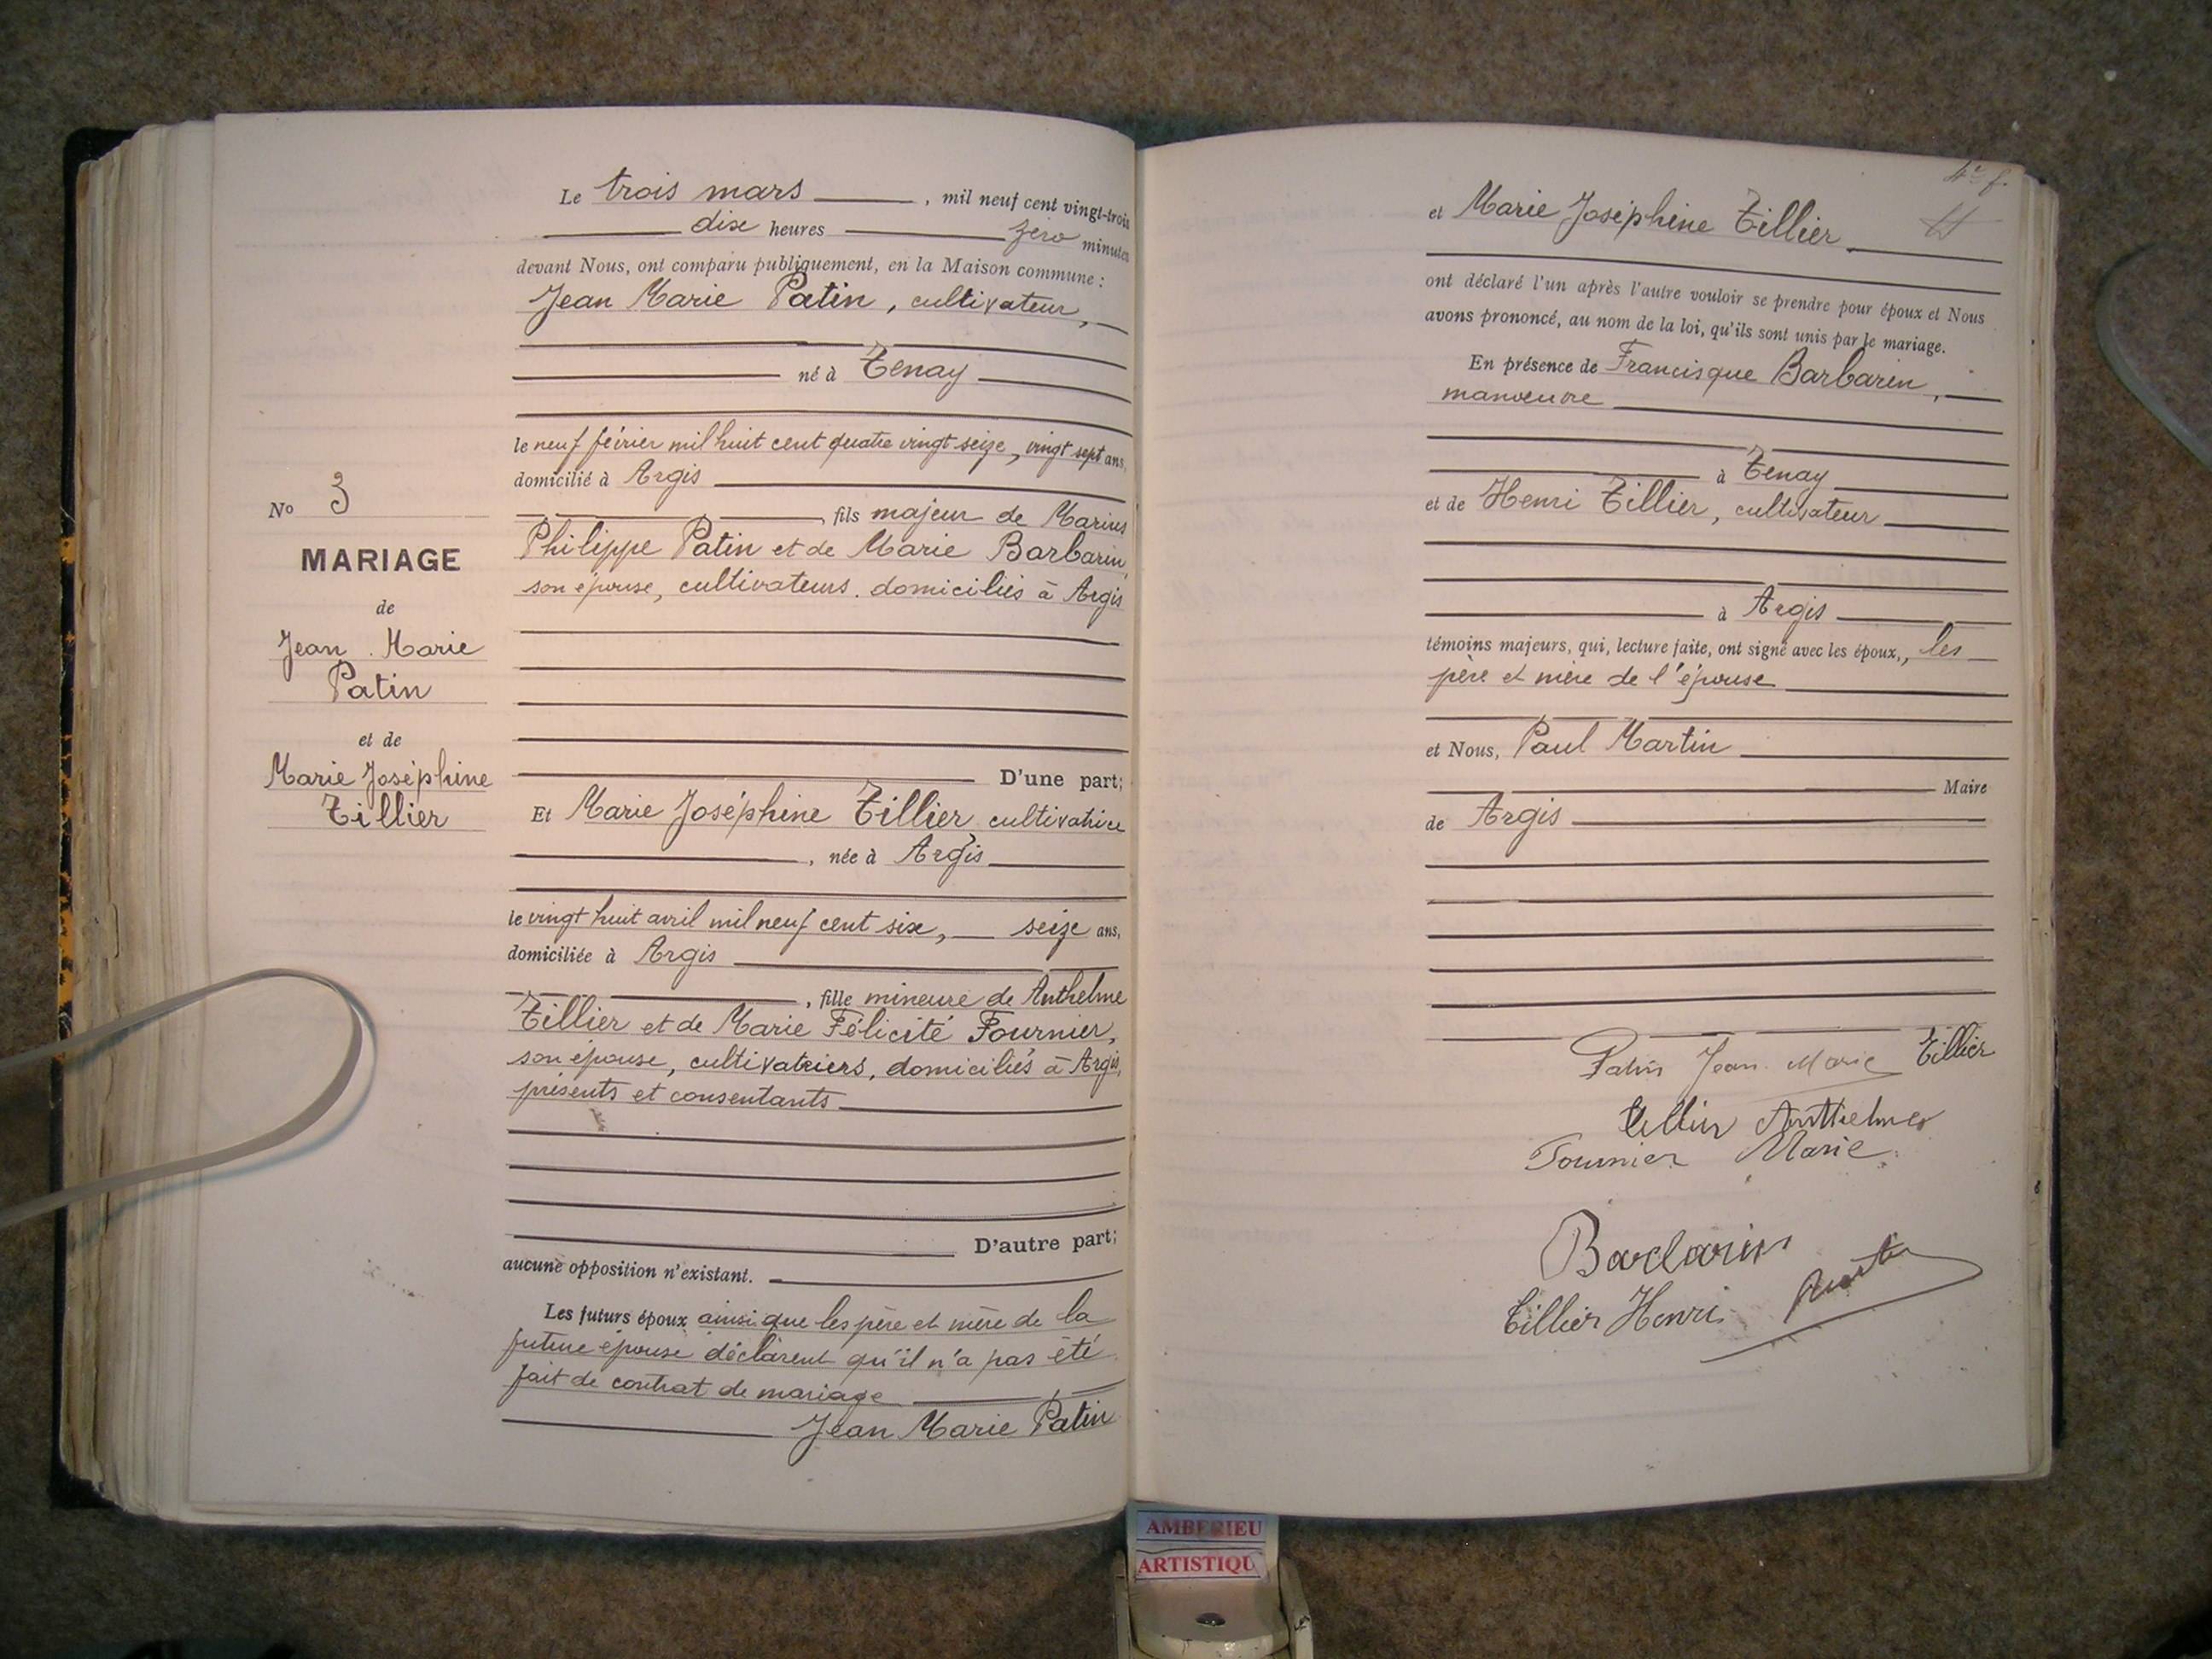 Le trois mars, mil neuf cent vingt-trois
dix heures zéro minutes
devant Nous, ont comparu publiquement, en la Maison commune :
Jean Marie Patin, cultivateur,
né à Tenay
le neuf février mil huit cent quatre vingt seize, vingt sept ans,
domicilié à Argis
, fils majeur de Marius
Philippe Patin et de Marie Barbarin,
son épouse, cultivateurs, domiciliés à Argis
No 3
MARIAGE
de
Jean Marie
Patin
et de
Marie Joséphine
Tillier
D'une part;
Et Marie Joséphine Tillier cultivatrice
, née à Argis
le vingt huit avril mil neuf cent six, seize ans,
domiciliée à Argis
, fille mineure de Anthelme
Tillier et de Marie Félicité Fournier,
son épouse, cultivatriers, domiciliés à Argis,
présents et consentants
D'autre part;
aucune opposition n'existant.
Les futurs époux ainsi que les père et mère de la
future épouse déclarent qu'il n'a pas été
fait de contrat de mariage
Jean Marie Patin
4e f.
et Marie Joséphine Tillier
ont déclaré l'un après l'autre vouloir se prendre pour époux et Nous
avons prononcé, au nom de la loi, qu'ils sont unis par le mariage.
En présence de Francisque Barbarin,
manoeuvre
à Tenay
et de Henri Tillier, cultivateur
à Argis
témoins majeurs, qui, lecture faite, ont signé avec les époux, les
père et mère de l'épouse
et Nous, Paul Martin
Maire
de Argis
Patin Jean Marie Tillier
Tillier Anthelme
Fournier Marie
Barbarin
Tillier Henri Martin
AMBERIEU
ARTISTIQU